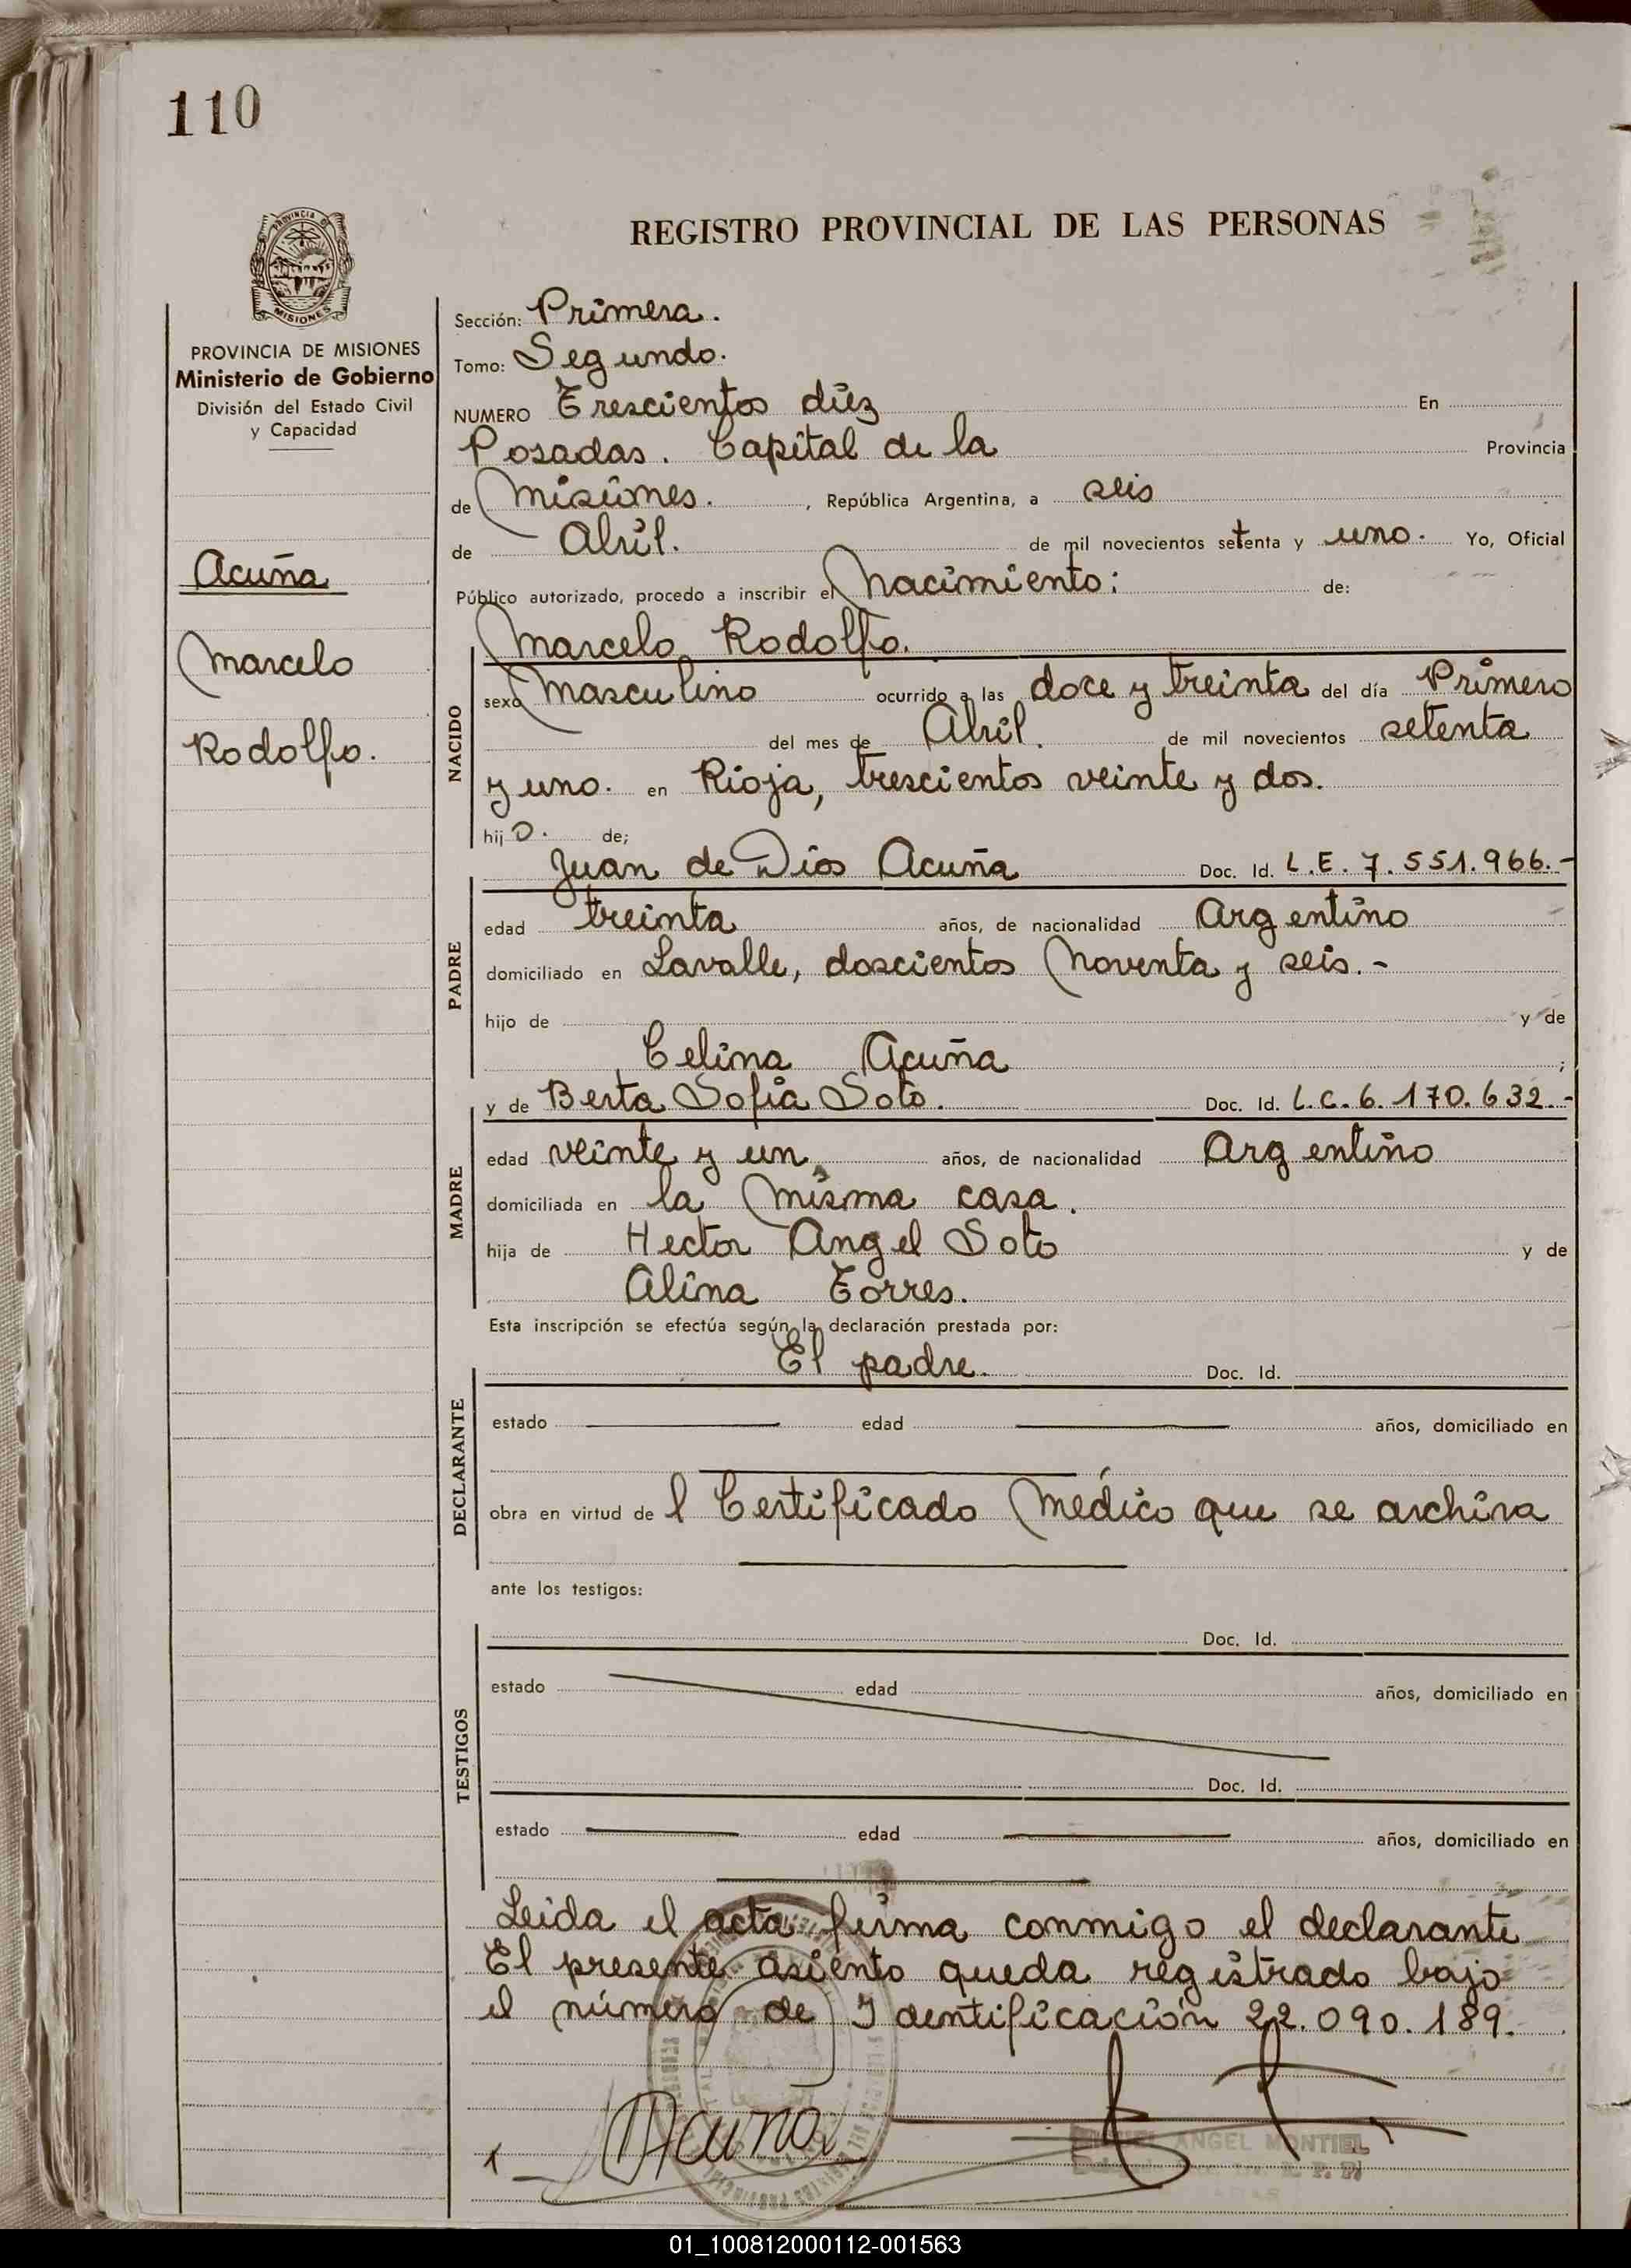 110
PROVINCIA DE
MISIONES
REGISTRO PROVINCIAL DE LAS PERSONAS
PROVINCIA DE MISIONES
Ministerio de Gobierno
División del Estado Civil
y Capacidad
Acuña
Marcelo
Rodolfo.
Sección: Primera.
Tomo: Segundo.
NUMERO Trescientos diez En
Posadas. Capital de la Provincia
de Misiones. , República Argentina, a seis
de Abril. de mil novecientos setenta y uno. Yo, Oficial
Público autorizado, procedo a inscribir el Nacimiento: de:
Marcelo Rodolfo.
NACIDO
sexo Masculino ocurrido a las doce y treinta del día Primero
del mes de Abril. de mil novecientos setenta
y uno. en Rioja, trescientos veinte y dos.
hij o. de;
Juan de Dios Acuña Doc. Id. L.E. 7.551.966.-
PADRE
edad treinta años, de nacionalidad Argentino
domiciliado en Lavalle, doscientos Noventa y seis.-
hijo de y de
Celina Acuña ;
y de Berta Sofia Soto. Doc. Id. L.C. 6.170.632.-
MADRE
edad veinte y un años, de nacionalidad Argentino
domiciliada en la Misma casa.
hija de Hector Angel Soto y de
Alina Torres.
Esta inscripción se efectúa según la declaración prestada por:
El padre. Doc. Id.
DECLARANTE
estado edad años, domiciliado en
obra en virtud de l Certificado Médico que se archiva
ante los testigos:
Doc. Id.
TESTIGOS
estado edad años, domiciliado en
Doc. Id.
estado edad años, domiciliado en
Leida el acta firma conmigo el declarante
El presente asiento queda registrado bajo
el número de Identificación 22.090.189.
Acuña
ANGEL MONTIEL
01_100812000112-001563